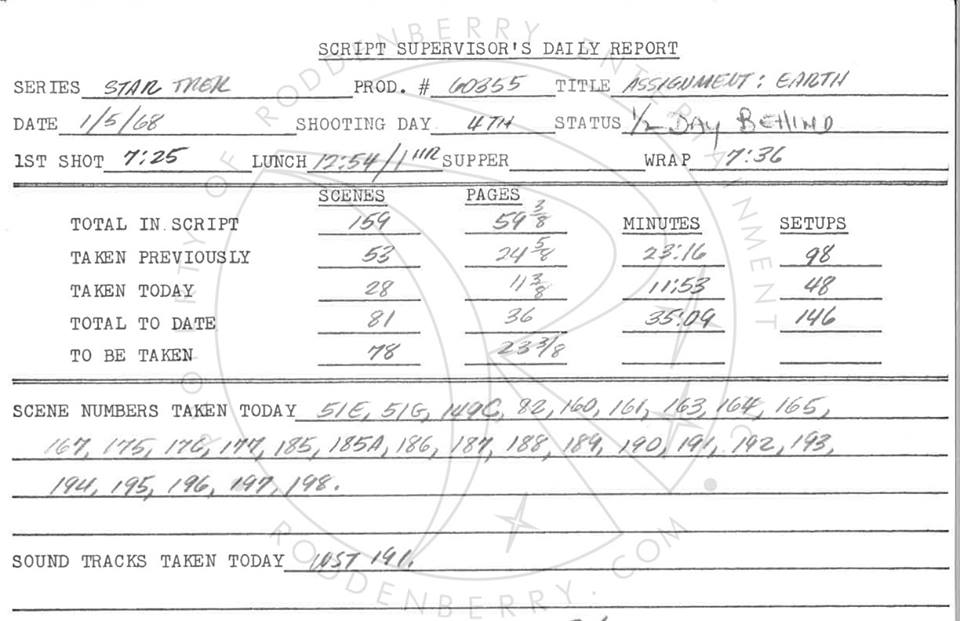 SCRIPT SUPERVISOR'S DAILY REPORT
SERIES STAR TREK PROD. # 60355 TITLE ASSIGNMENT: EARTH
DATE 1/5/68 SHOOTING DAY 4TH STATUS 1/2 DAY BEHIND
1ST SHOT 7:25 LUNCH 12:54/1 HR SUPPER WRAP 7:36
SCENES PAGES MINUTES SETUPS
TOTAL IN SCRIPT 159 59 3/8
TAKEN PREVIOUSLY 53 24 5/8 23:16 98
TAKEN TODAY 28 11 3/8 11:53 48
TOTAL TO DATE 81 36 35:09 146
TO BE TAKEN 78 23 3/8
SCENE NUMBERS TAKEN TODAY 51E, 51G, 149C, 82, 160, 161, 163, 164, 165,
167, 175, 176, 177, 185, 185A, 186, 187, 188, 189, 190, 191, 192, 193,
194, 195, 196, 197, 198.
SOUND TRACKS TAKEN TODAY 191.
PROPERTY OF RODDENBERRY ENTERTAINMENT INC.
RODDENBERRY.COM